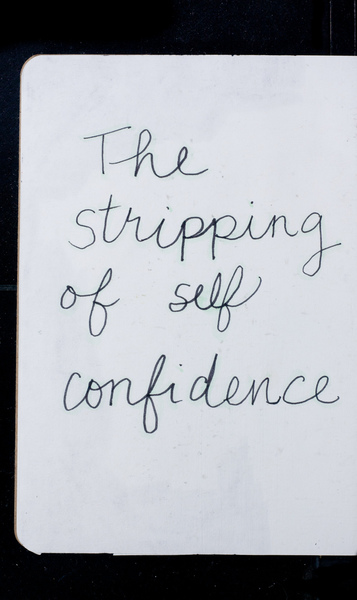 The
stripping
of self
confidence